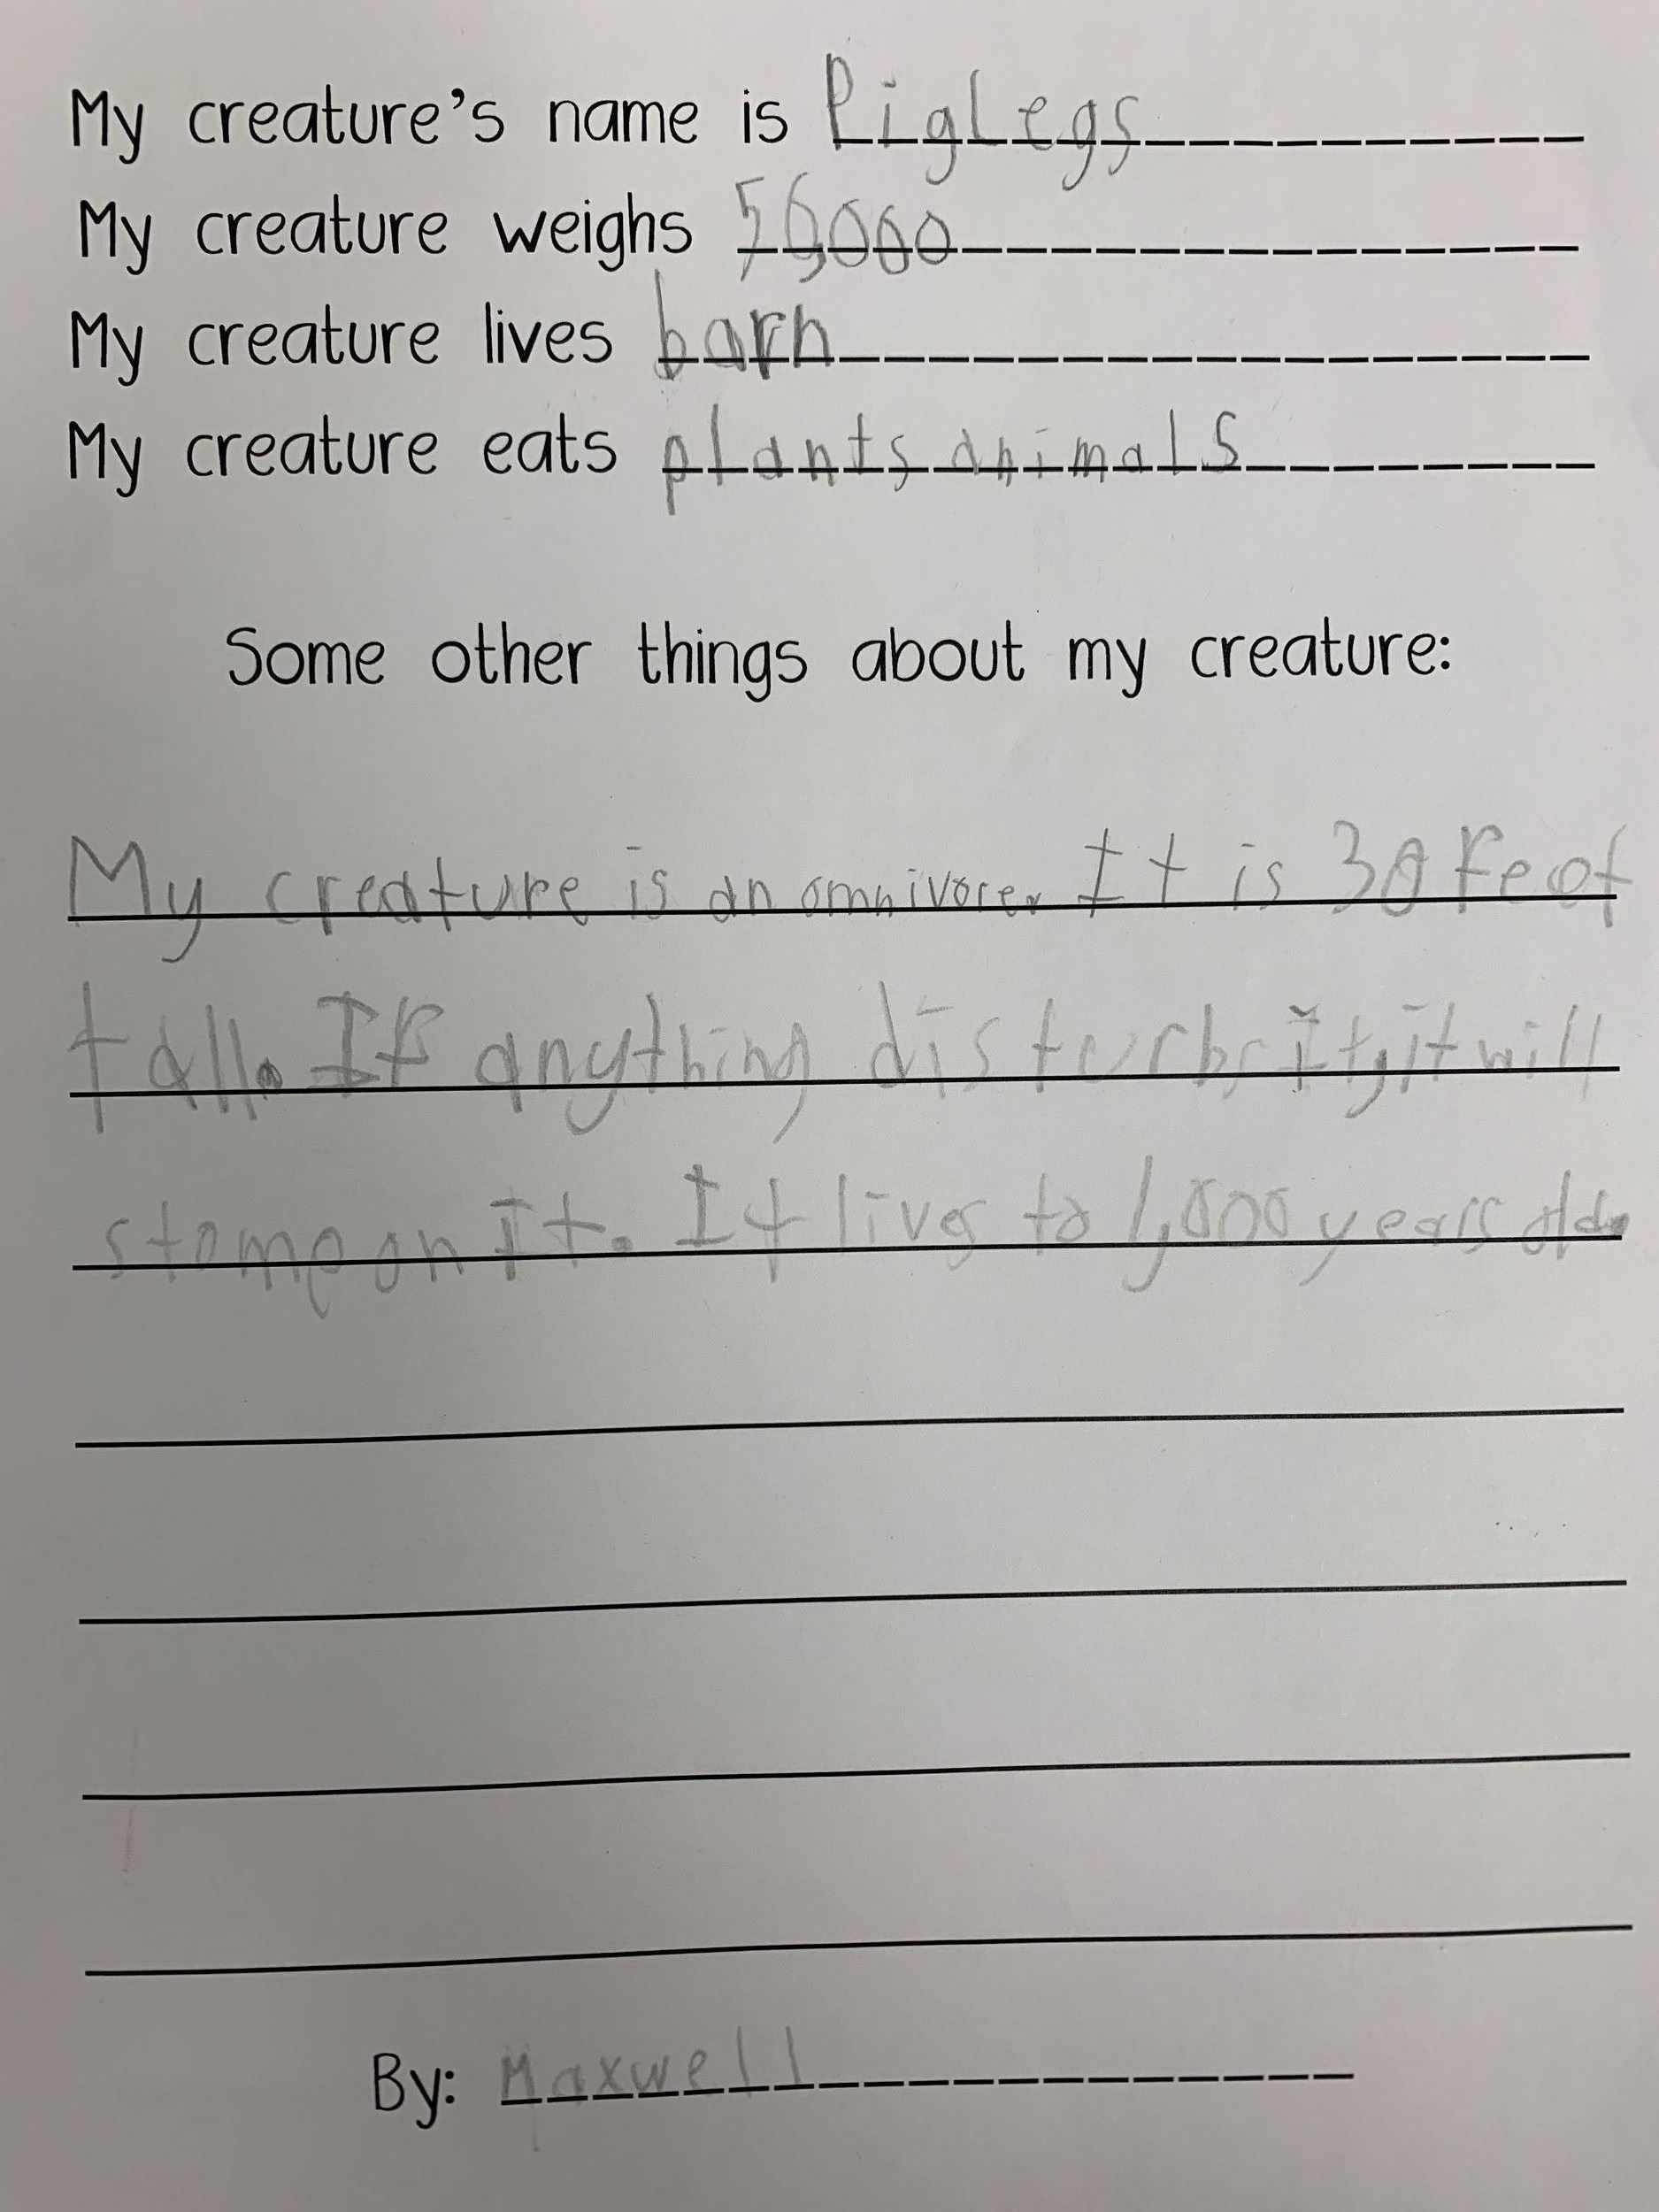 My creature's name is PigLegs
My creature weighs 50000
My creature lives barn
My creature eats plants animals
Some other things about my creature:
My creature is an omnivore. It is 30 Feet
tall. If anything disturbs it, it will
stomp on It. It lives to 1,000 years old.
By: Maxwell